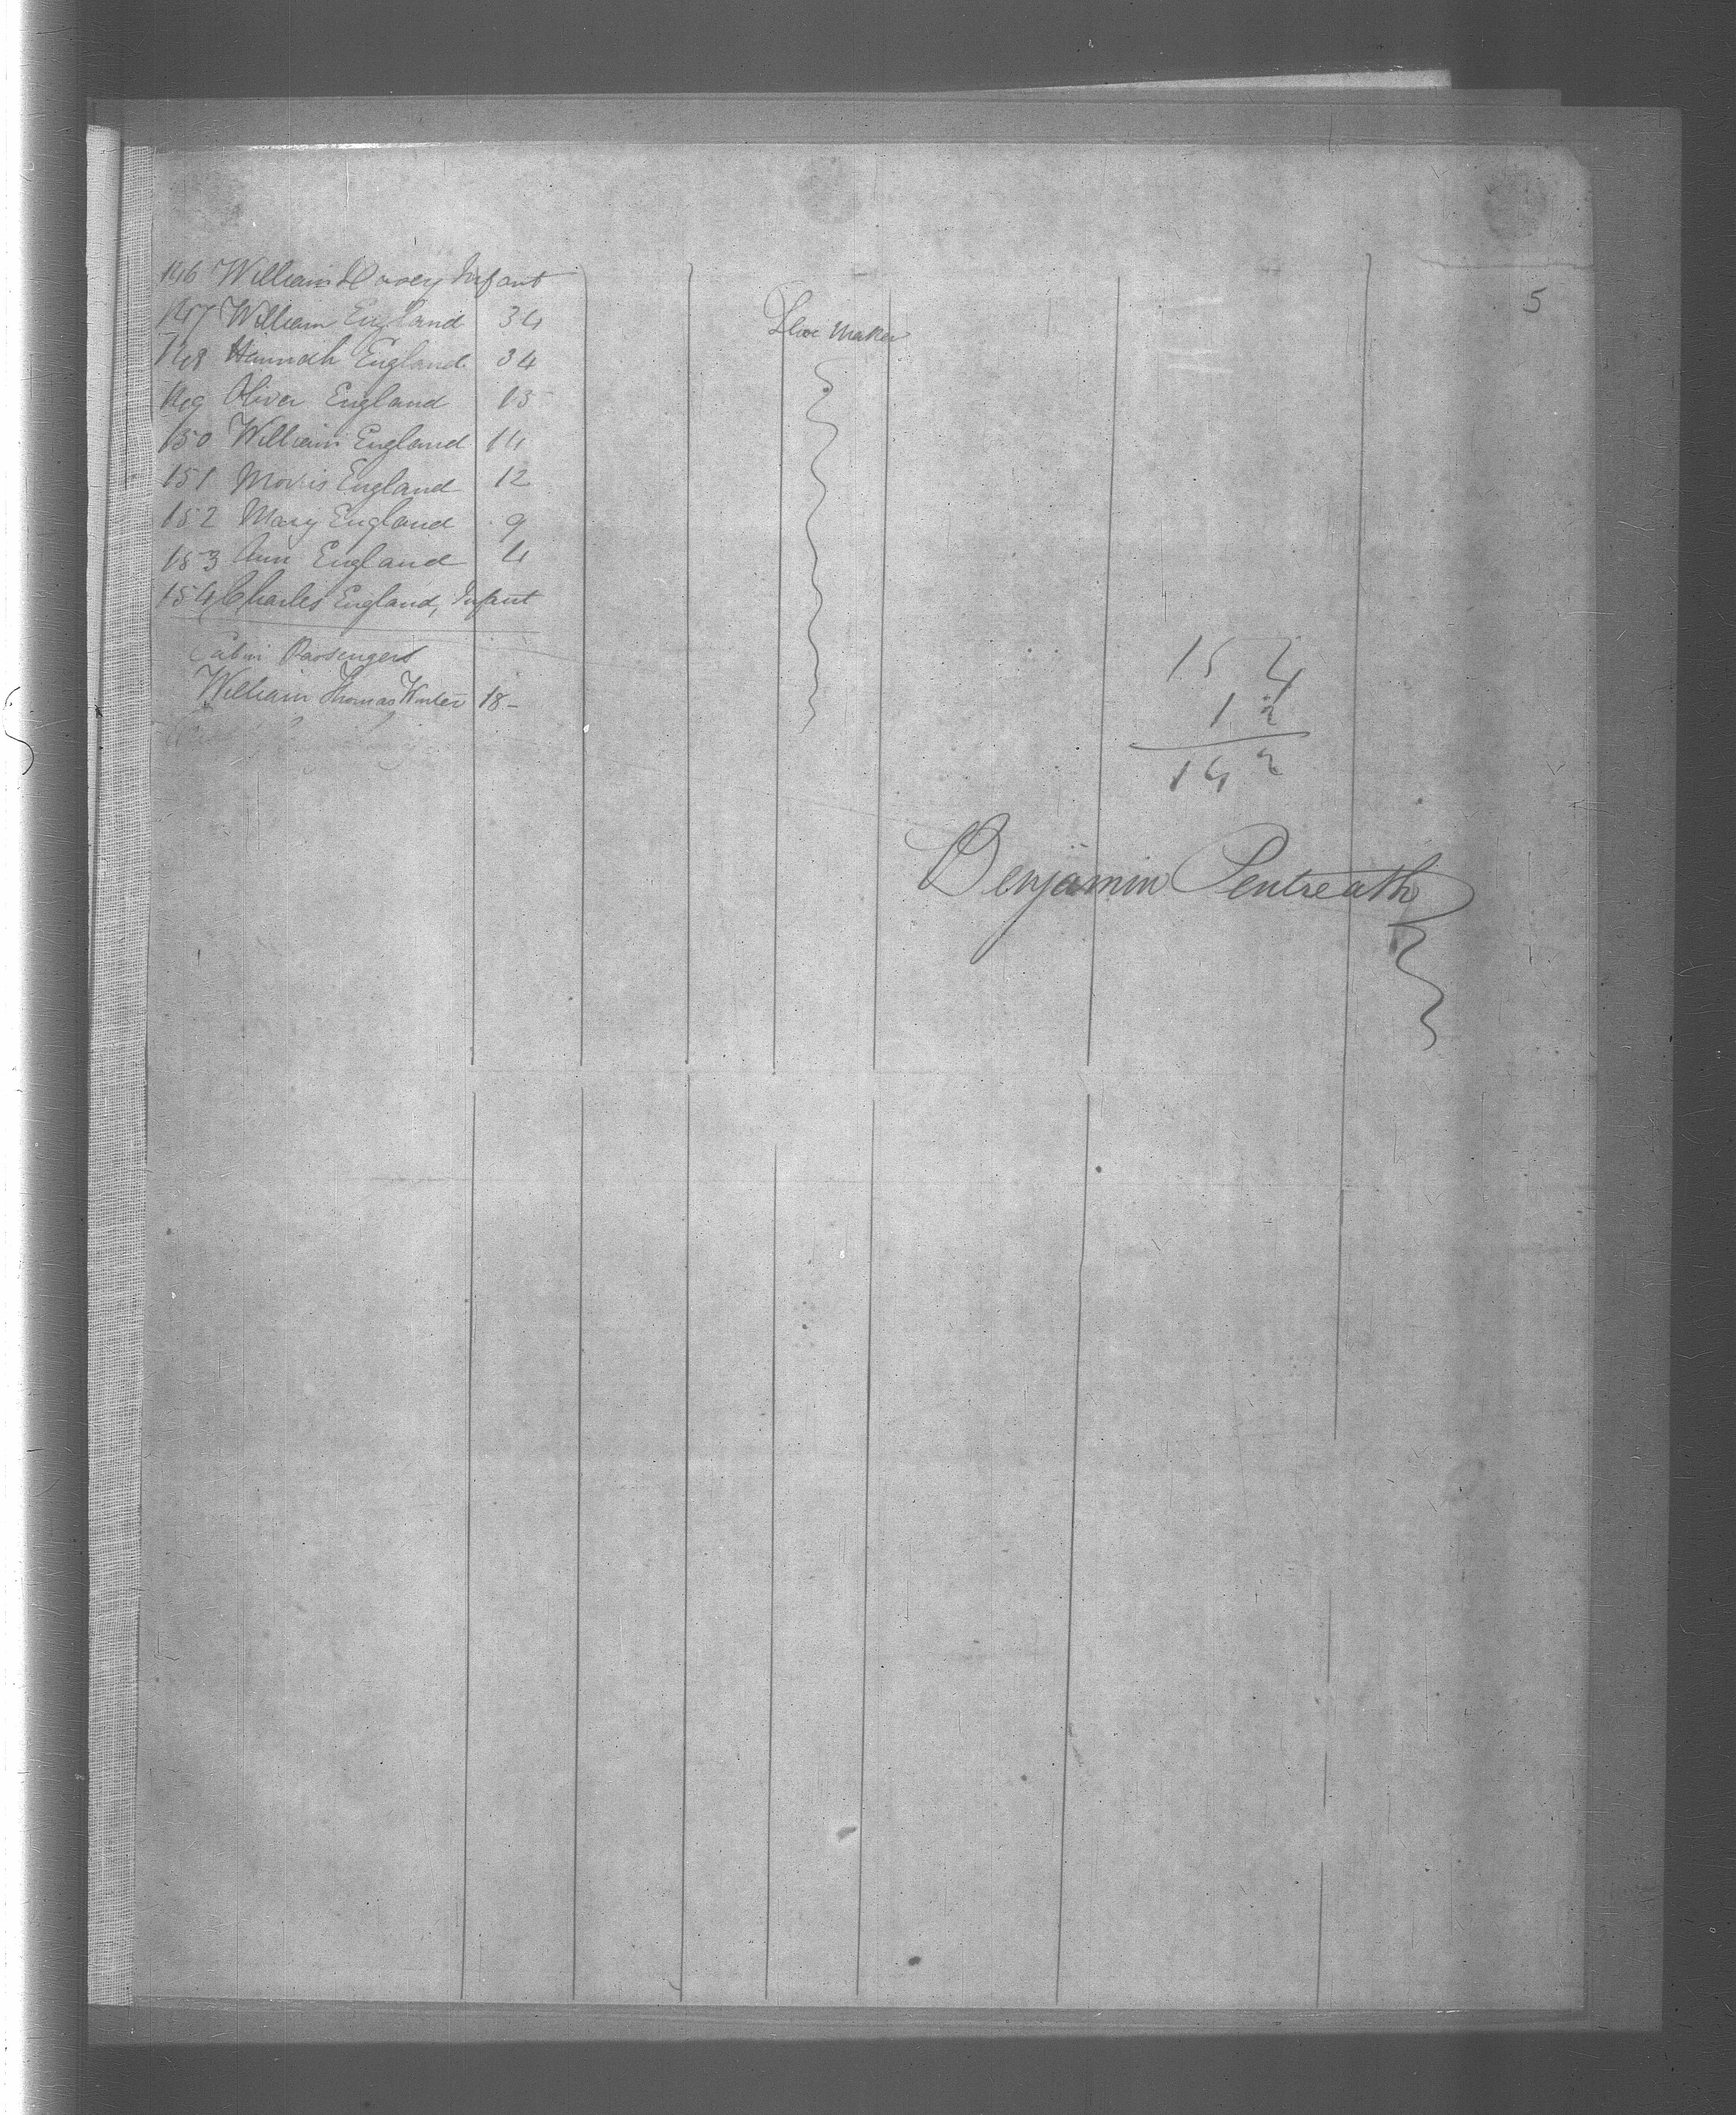 5
146 William Davey Infant
147 William England 34 Shoe Maker
148 Hannah England 34
149 Oliver England 15
150 William England 14
151 Morris England 12
152 Mary England 9
153 Ann England 4
154 Charles England, Infant
Cabin Passengers
William Thomas Winter 18-
154
12
142
Benjamin Pentreath